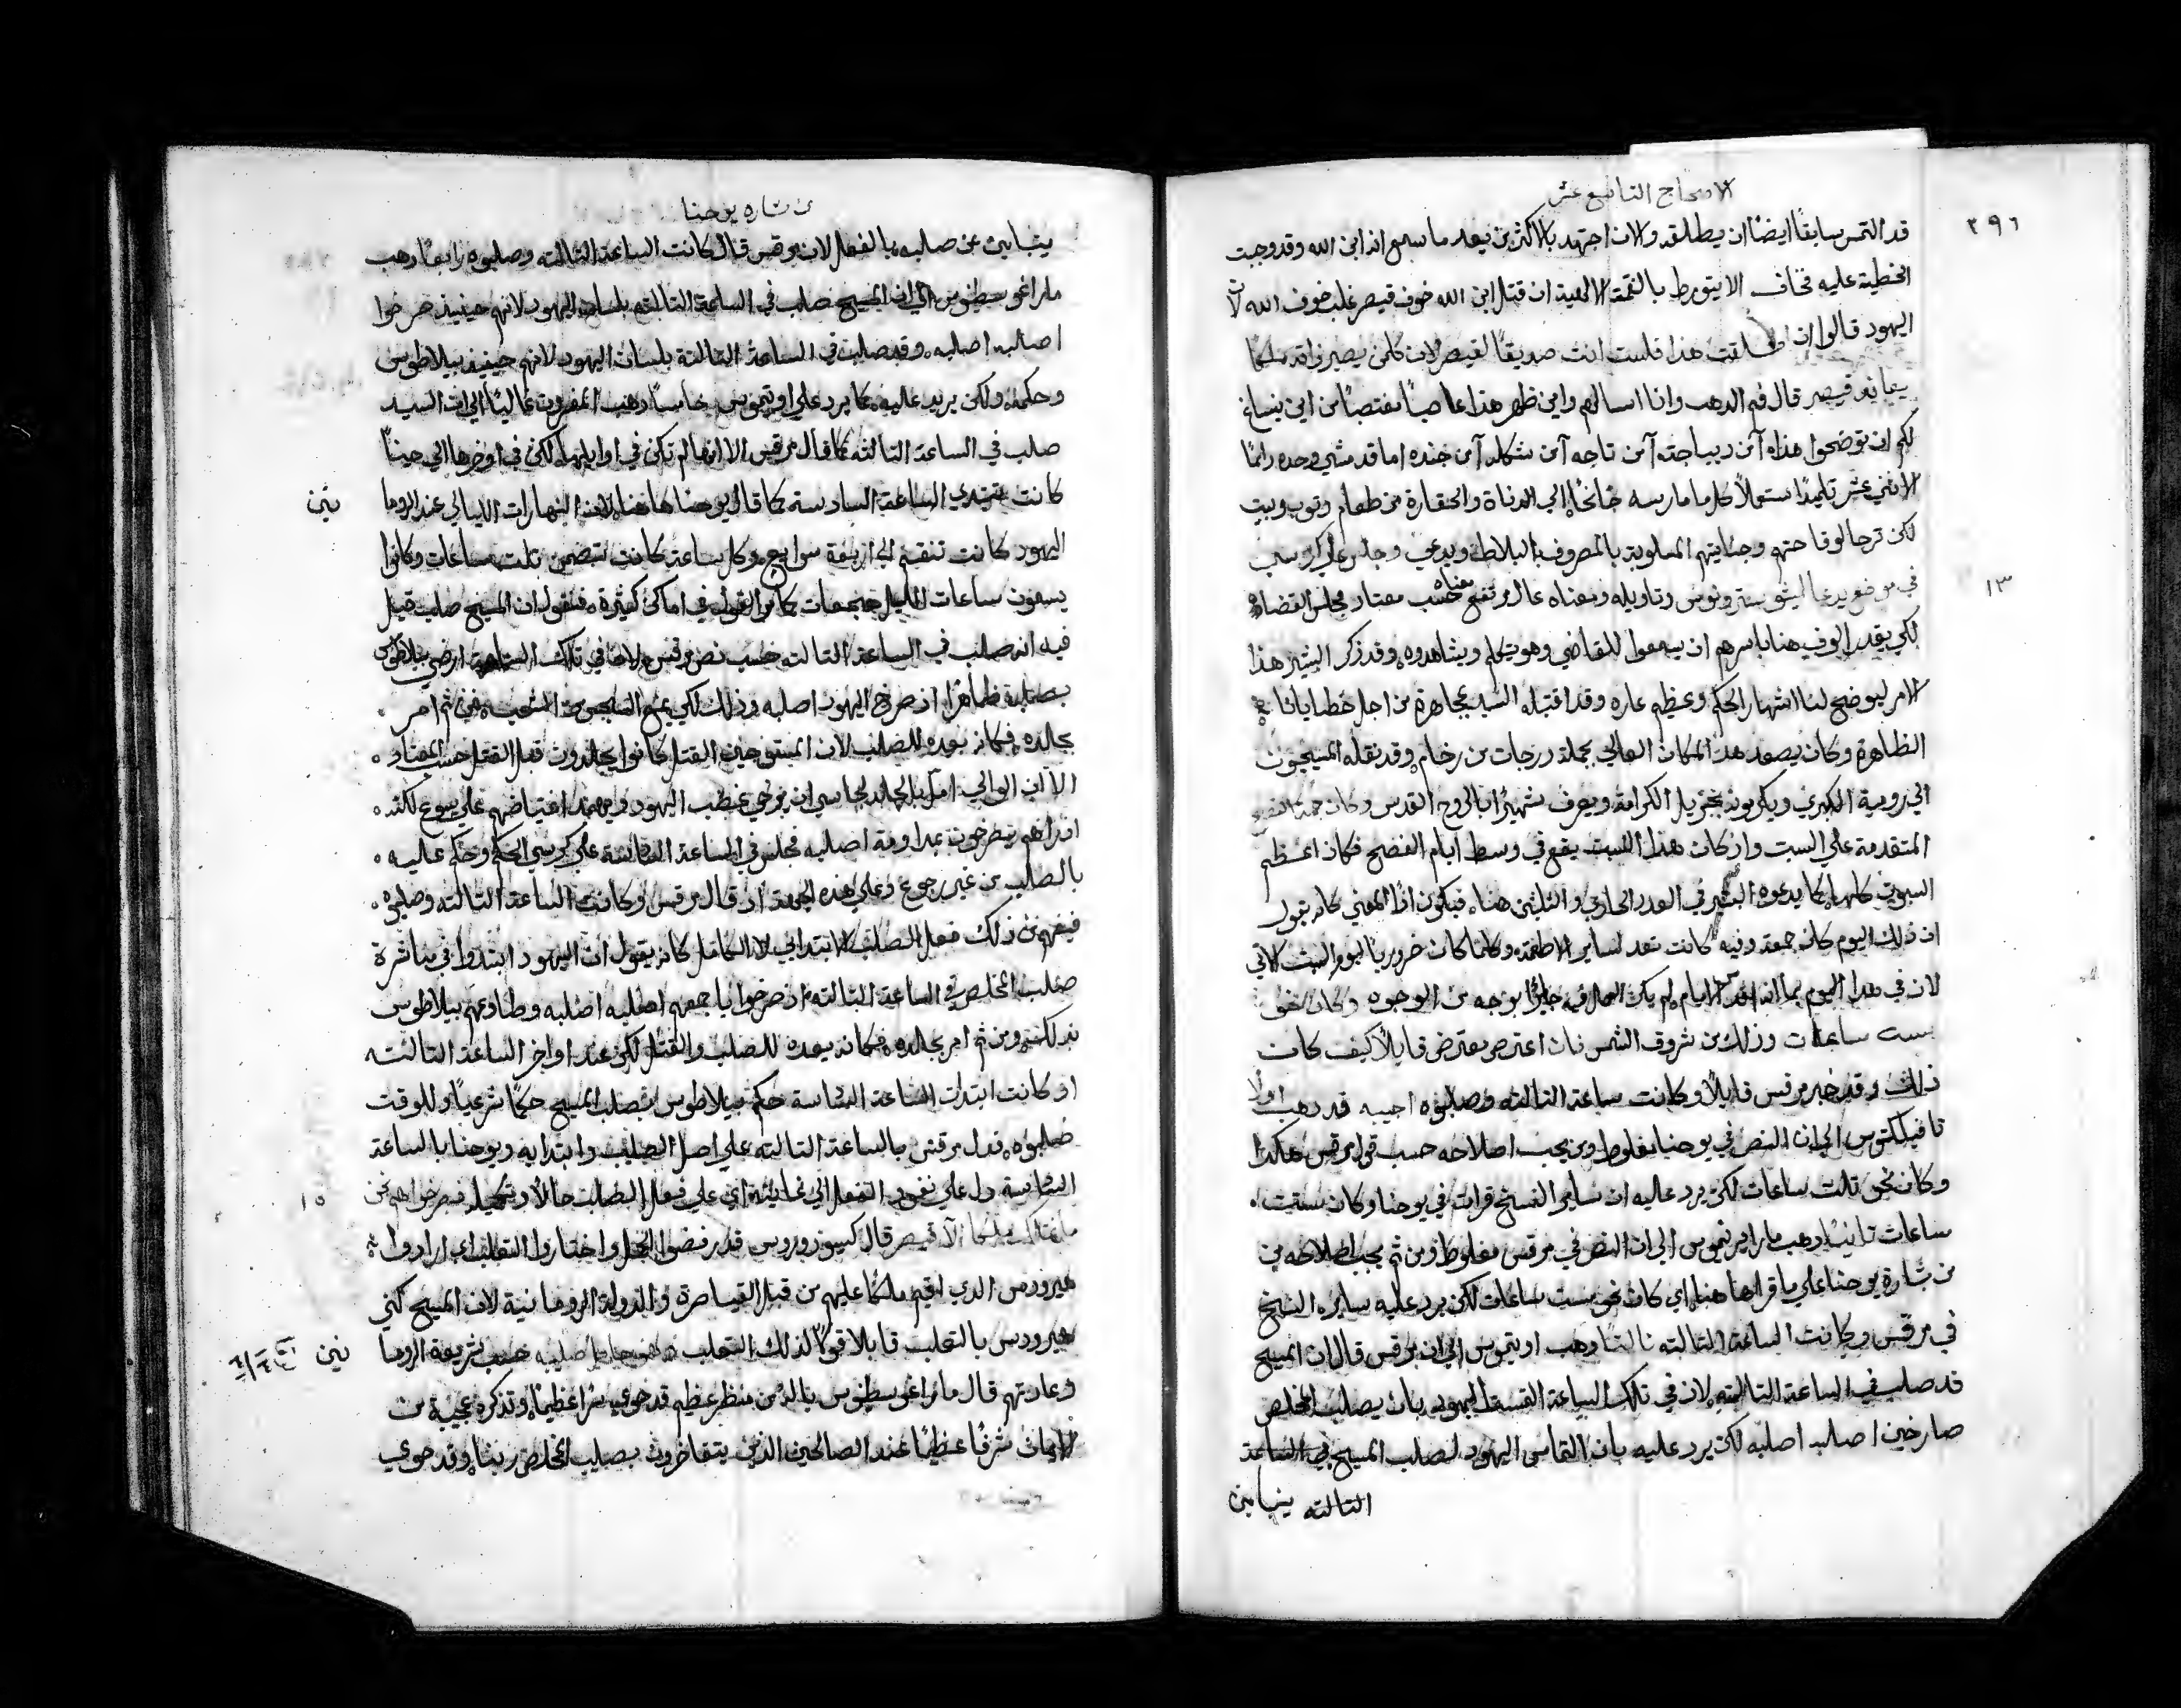 الاصحاح التاسع عشر
٢٩٦
قد التمس سابقًا ايضًا ان يطلقه والان اجتهد بالاكثر من بعد ما سمع انه ابن الله وقد وجبت
الخطية عليه فخاف الا يتورط بالنقمة الالهية ان قتل ابن الله خوف قيصر غلب خوف الله لان
اليهود قالوا ان اطلقت هذا فلست انت صديقًا لقيصر لان كلمن يصير ذاته ملكًا
يعاند قيصر قال فم الدهب وانا اسالهم واين ظهر هذا عاصيًا مغتصبًا من اين ينساغ
لكم ان توضحوا هذا، آمن ديباجته آمن تاجه آمن شكله آمن جنده اما قد مشي وحده دايمًا
الاثني عشر تلميذًا مستعملًا كل ما مارسه خانحًا الي الدناة والحقارة من طعام وثوب وبيت
لكن ترحا لوقاحتهم وجنايتهم المملوية بالمصروف بالبلاط ويدعي وجلس علي كرسي
١٣
في موضع يدعا ليثوستروتوس وتاويله ومعناه عال مرتفع حسب معتاد مجلس القضاة
لكي يقدر الوف هنا باسرهم ان يسمعوا للقاضي وهو يتكلم ويشاهدوه وقد ذكر البشير هذا
الامر ليوضح لنا اشتهار الحكم وعظيم عاره وقد اقتبله السيد بمجاهرة من اجل خطايانا
الظاهرة وكان يصعد هذا المكان العالي بجملة درجات من رخام وقد نقله المسيحيون
الي رومية الكبري ويكرمونه بجزيل الكرامة ويعرف شهيرًا بالروح القدس وكان جمعة الفصح
المتقدمة علي السبت واذ كان هذا السبت يقع في وسط ايام الفصح فكان اعظم
السبوت كلها كما يدعوه البشير في العدد الحادي والثلثين هنا، فيكون اذًا المعني كانه يقول
ان ذلك اليوم كان جمعة وفيه كانت تعد لساير الاطعمة وكلما كان ضروريًا ليوم السبت الاتي
لان في هذا اليوم بما انه اقدس الايام لم يكن العمل فيه جايزًا بوجه من الوجوه وكان نحو
ست ساعات وذلك من شروق الشمس فان اعترض معترض قايلًا كيف كان
ذلك وقد خبر مرقس قايلًا وكانت ساعة الثالثه وصلبوه اجيبه قد دهب اولا
تافيلكتوس الي ان النص في يوحنا مغلوط ومن يجب اصلاحه حسب قول مرقس هكذا
وكان نحو ثلث ساعات لكن يرد عليه ان ساير النسخ قرات في يوحنا وكان ست
ساعات ثانيًا دهب مار ايرنيموس الي ان النص في مرقس مغلوط ومن ثم يجب اصلاحه من
من بشارة يوحنا علي ما قراها هنا، اي كان نحو ست ساعات لكن يرد عليه ساير النسخ
في مرقس وكانت الساعة الثالثه ثالثًا دهب اوتيموس الي ان مرقس قال ان المسيح
قد صلب في الساعة الثالثه لان في تلك الساعة التمس اليهود بان يصلب المخلص
صارخين اصلبه اصلبه لكن يرد عليه بان التماس اليهود لصلب المسيح في الساعة
الثالثه يتباين
بشاره يوحنا
يتباين عن صلبه بالفعل لان مرقس قال كانت الساعة الثالثه وصلبوه رابعًا دهب
مار اغوسطينوس الي ان المسيح صلب في الساعة الثالثه بلسان اليهود لانهم حينيذ صرخوا
اصلبه اصلبه، وقد صلب في الساعة الثالثة بلسان اليهود لانهم حينيذ بيلاطوس
وحكمه، ولكن يرد عليه كما يرد علي اوتيموس خامسًا دهب المفسرون غالبًا الي ان السيد
صلب في الساعة الثالثه كما قال مرقس الا انها لم تكن في اوايلها لكن في اوخرها الي حينما
كانت تبتدي الساعة السادسة كما قال يوحنا هاهنا لان النهارات الليالي عند الروما
نيين
اليهود كانت تنقسم الي اربعة سوابع، وكل ساعة كانت تتضمن ثلث ساعات وكانوا
يسمون ساعات الليل هجعات كما مر القول في اماكن كثيرة، فنقول ان المسيح صلب قيل
فيه انه صلب في الساعة الثالثه حسب نص مرقس لان في تلك الساعة ارضي بيلاطوس
بصلبه ظاهرًا اذ صرخ اليهود اصلبه وذلك لكي يمنع السجس من الشعب، فمن ثم امر
بجالده، فكانه يعده للصلب لان المستوجبين القتل كانوا يجلدون قبل القتل حسب المعتاد
الا ان الوالي امر بالجلد لجاسي ان يرخي غضب اليهود ويخمد اغتياضهم علي يسوع لكنه
اذ راهم يصرخون بمداومة اصلبه فجلس في الساعة السادسة علي كرسي الحكم وحكم عليه
بالصلب من غير رجوع وعلي هذه الجهة اذ قال مرقس وكانت الساعة الثالثه وصلبوه
فيفهم من ذلك فعل الصلب الابتدايي لا الكامل كانه يقول ان اليهود ابتدوا في مباشرة
صلب المخلص في الساعة الثالثه اذ صرخوا باجمعهم اصلبه اصلبه وطاوعهم بيلاطوس
بذلك، ومن ثم امر بجالده، فكانه يعده للصلب والقتل لكن عند اواخر الساعة الثالثه
اذ كانت ابتدات الساعة السادسة حكم بيلاطوس بصلب المسيح حكمًا شرعيًا وللوقت
صلبوه، فدل مرقس بالساعة الثالثه علي اصل الصليب وابتدايه ويوحنا بالساعة
السادسة دل علي نفوذ الفعل الي نهايته اي علي فعل الصلب حالًا وتكميله، فصرخوا هم نحن
١٥
ما نملك ملكًا الا قيصر قال كيبوزوروس قد رفضوا الحمل واختاروا الثعلب اي ارادوا
هيرودس الدي اقيم ملكًا عليهم من قبل القياصرة والدولة الرومانية لان المسيح كني
هيرودس بالثعلب قايلا قولًا لذلك الثعلب فهو حامل صليبه حسب شريعة الروما
نيين
وعادتهم قال مار اغوسطينوس يالة من منظر عظيم قد حوي سرًا عظيمًا وتذكره عجيبة من
الايمان شرفًا عظيمًا عند الصالحين الذين يتفاخرون بصليب المخلص ربنا، وقد حوي